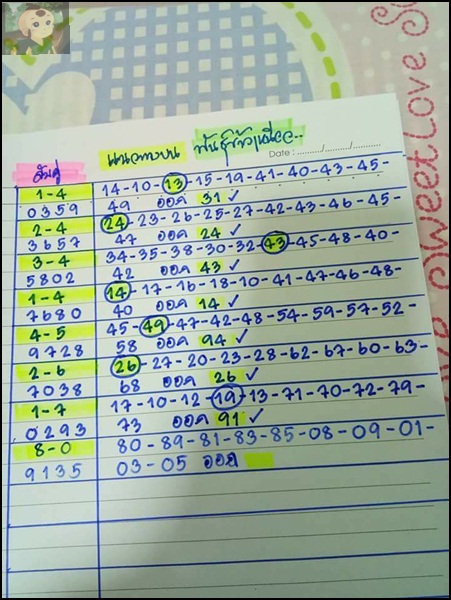 Sweet Love
แนวทางบน พันธุ์ข้าวเหนียว..
Date : ......./......./.......
1-4 14-10-13-15-19-41-40-43-45-
0359 49 ออก 31 ✓
2-4 24-23-26-25-27-42-43-46-45-
3657 47 ออก 24 ✓
3-4 34-35-38-30-32-43-45-48-40-
5802 42 ออก 43 ✓
1-4 14-17-16-18-10-41-47-46-48-
7680 40 ออก 14 ✓
4-5 45-49-47-42-48-54-59-57-52-
9728 58 ออก 94 ✓
2-6 26-27-20-23-28-62-67-60-63-
7038 68 ออก 26 ✓
1-7 17-10-12-19-13-71-70-72-79-
0293 73 ออก 91 ✓
8-0 80-89-81-83-85-08-09-01-
9135 03-05 ออก